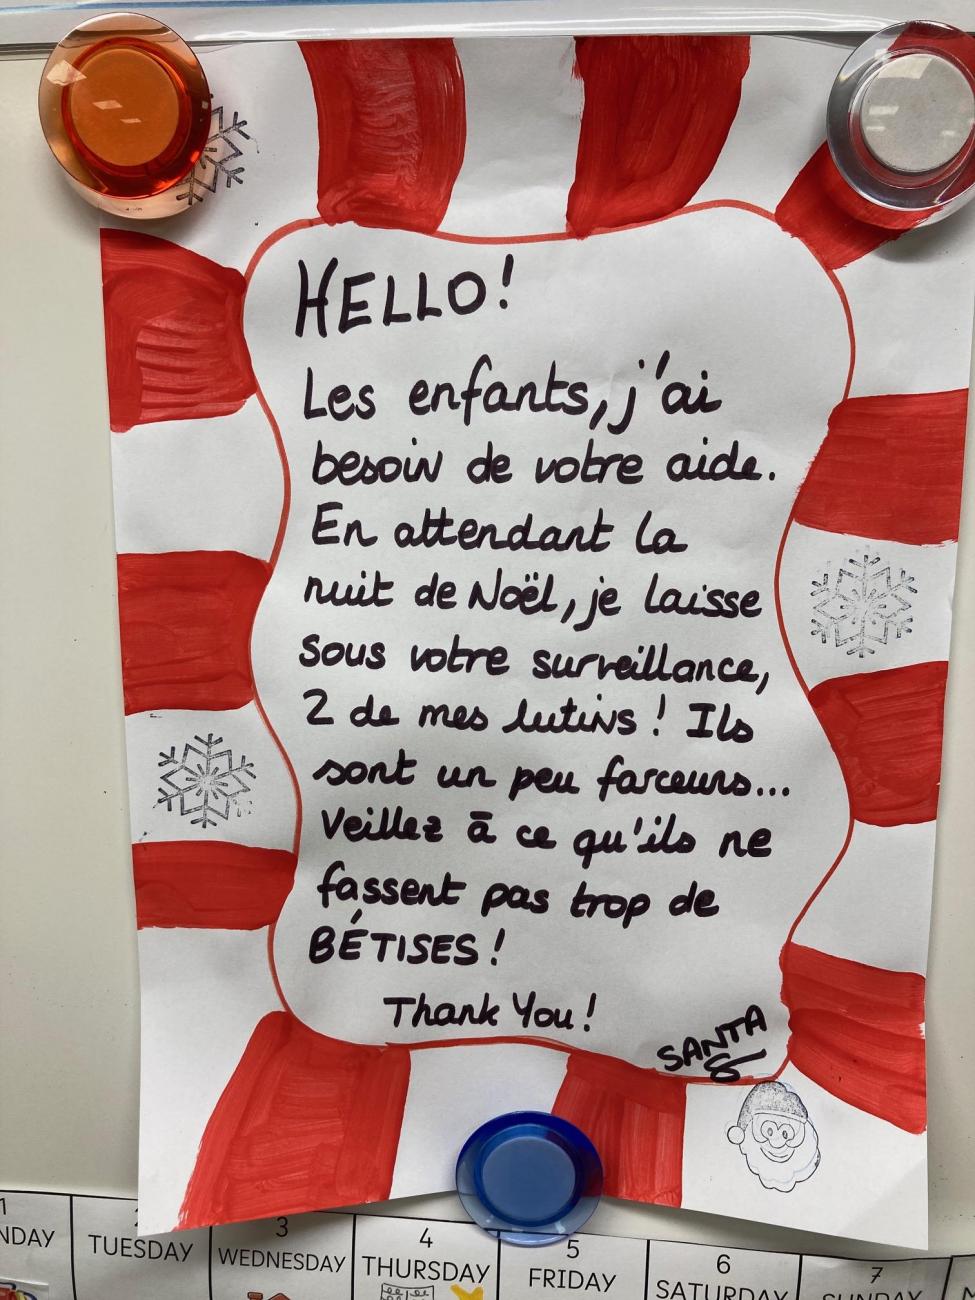 HELLO!
Les enfants, j'ai
besoin de votre aide.
En attendant la
nuit de Noël, je laisse
sous votre surveillance,
2 de mes lutins ! Ils
sont un peu farceurs...
Veillez à ce qu'ils ne
fassent pas trop de
BÉTISES !
Thank You !
SANTA
1 2 3 4 5 6 7
NDAY TUESDAY WEDNESDAY THURSDAY FRIDAY SATURDAY SUNDAY